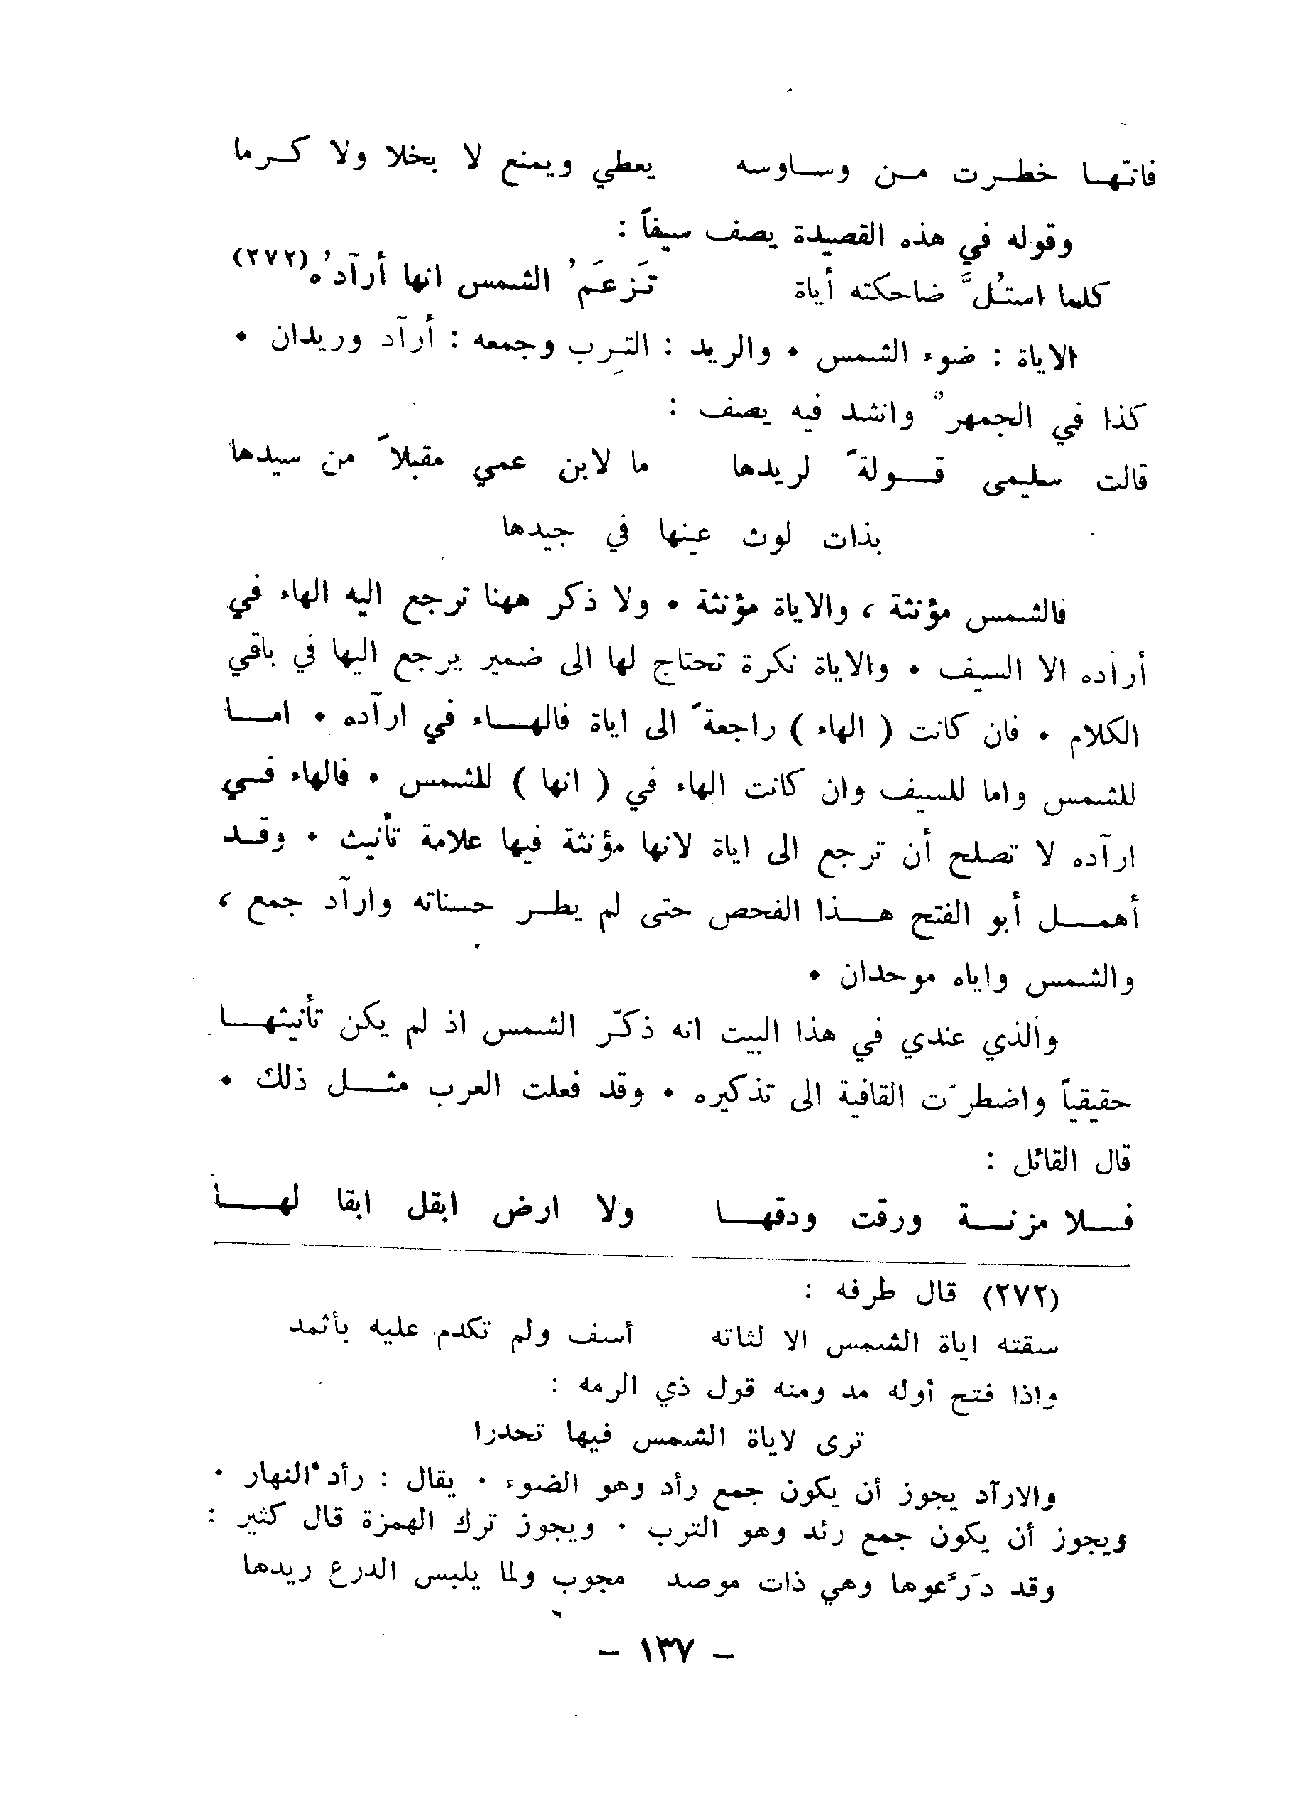 فانّها خطرت من وساوسه يعطي ويمنع لا بخلا ولا كرما
وقوله في هذه القصيدة يصف سيفاً :
كلما استُلَّ ضاحكته أياة تَزعَمُ الشمس انها أرآدُه (٢٧٢)
الاياة : ضوء الشمس ٠ والريد : التِرب وجمعه : أرآد وريدان ٠
كذا في الجمهرة وانشد فيه يصف :
قالت سليمى قولةً لريدها ما لابن عمي مقبلاً من سيدها
بذات لوث عينها في جيدها
فالشمس مؤنثة ، والاياة مؤنثة ٠ ولا ذكر ههنا ترجع اليه الهاء في
أرآده الا السيف ٠ والاياة نكرة تحتاج لها الى ضمير يرجع اليها في باقي
الكلام ٠ فان كانت ( الهاء ) راجعةً الى اياة فالهاء في ارآده ٠ اما
للشمس واما للسيف وان كانت الهاء في ( انها ) للشمس ٠ فالهاء في
ارآده لا تصلح أن ترجع الى اياة لانها مؤنثة فيها علامة تأنيث ٠ وقد
أهمل أبو الفتح هذا الفحص حتى لم يطر حسناته وارآد جمع ،
والشمس واياه موحدان ٠
والذي عندي في هذا البيت انه ذكّر الشمس اذ لم يكن تأنيثها
حقيقياً واضطرّت القافية الى تذكيره ٠ وقد فعلت العرب مثل ذلك ٠
قال القائل :
فلا مزنة ورقت ودقها ولا ارض ابقل ابقا لها
(٢٧٢) قال طرفه :
سقته اياة الشمس الا لثاته أسف ولم تكدم عليه بأثمد
واذا فتح أوله مد ومنه قول ذي الرمه :
ترى لاياة الشمس فيها تحدرا
والارآد يجوز أن يكون جمع رأد وهو الضوء ٠ يقال : رأد النهار ٠
ويجوز أن يكون جمع رئد وهو الترب ٠ ويجوز ترك الهمزة قال كثير :
وقد درّعوها وهي ذات موصد مجوب ولما يلبس الدرع ريدها
– ١٣٧ –